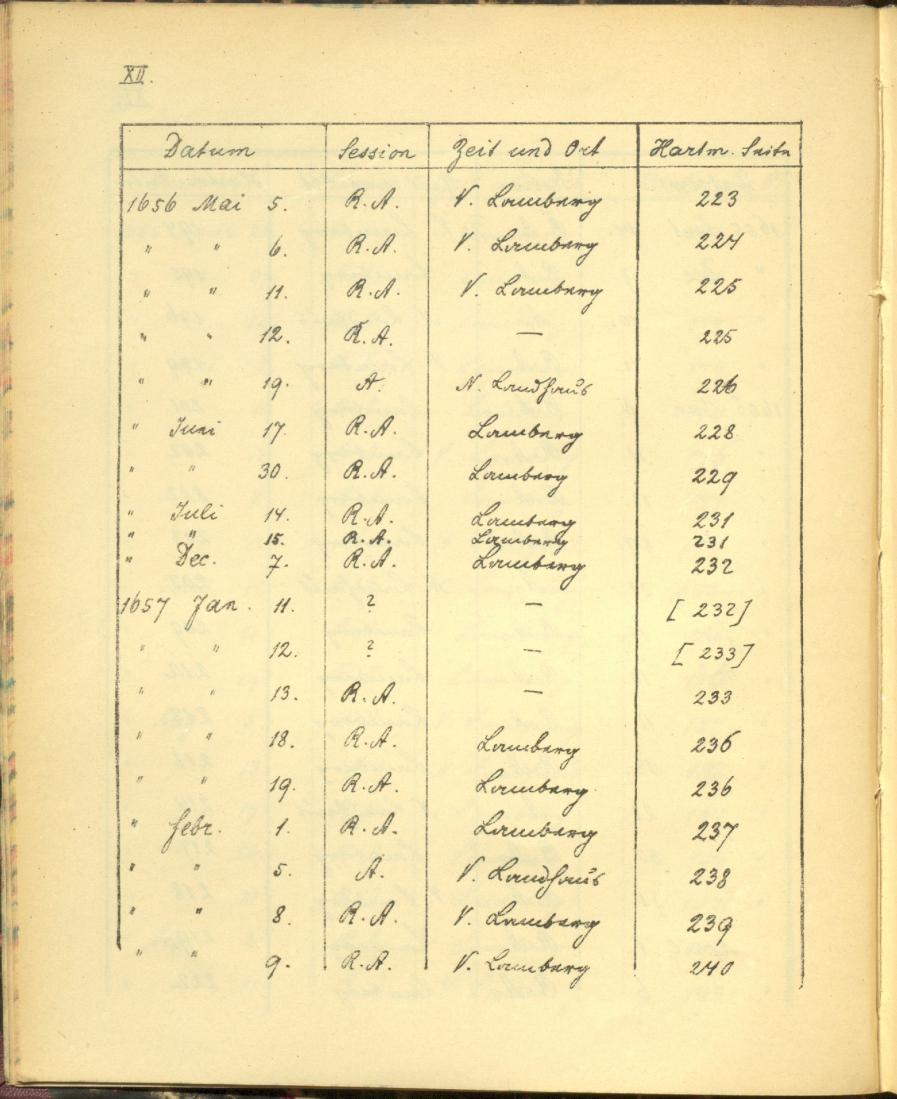 XII.
Datum Session Zeit und Ort Hartm. Seite
1656 Mai 5. R.A. V. Lamberg 223
" " 6. R.A. V. Lamberg 224
" " 11. R.A. V. Lamberg 225
" " 12. R.A. — 225
" " 19. A. N. Landhaus 226
" Juni 17. R.A. Lamberg 228
" " 30. R.A. Lamberg 229
" Juli 14. R.A. Lamberg 231
" " 15. R.A. Lamberg 231
" Dec. 7. R.A. Lamberg 232
1657 Jan. 11. ? — [232]
" " 12. ? — [233]
" " 13. R.A. — 233
" " 18. R.A. Lamberg 236
" " 19. R.A. Lamberg 236
" Febr. 1. R.A. Lamberg 237
" " 5. A. V. Landhaus 238
" " 8. R.A. V. Lamberg 239
" " 9. R.A. V. Lamberg 240